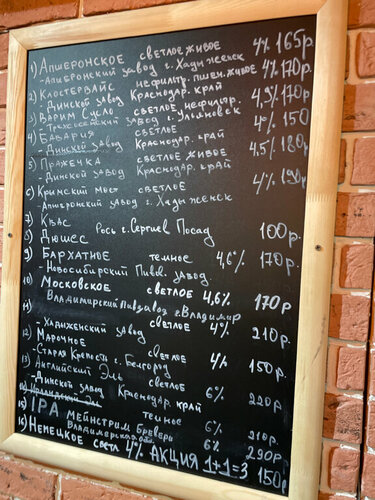 1) Апшеронское светлое живое 4% 165р.
- Апшеронский завод г. Хадыженск
2) Клостервайс нефильтр. пшен. живое 4% 170р.
- Динской завод Краснодар. край
3) Варим Сусло светлое нефильтр. 4,9% 170р.
- Трехсосенский завод г. Ульяновск
4) Бавария светлое 4% 150
- Динской завод Краснодар. край
5) Пражечка светлое живое 4,5% 180р
- Динской завод Краснодар. край
6) Крымский мост светлое 4% 190р
- Апшеронский завод г. Хадыженск
7) Квас
8) Дюшес Рось г. Сергиев Посад 100р.
9) Бархатное темное 4,6% 170р.
- Новосибирский Пив. завод.
10) Московское светлое 4,6% 170р
Владимирский Пивзавод г. Владимир
11) светлое 4% 210р.
- Хадыженский завод
12) Марочное светлое 4% 150р.
Старая Крепость г. Белгород
13) Английский Эль светлое 6% 220р
Динской завод Краснодар. край
15) IPA темное 6% 210р.
Мейнстрим Бревери 6% 290р
Владимирская обл.
16) Немецкое светл 4% Акция 1+1=3 150р